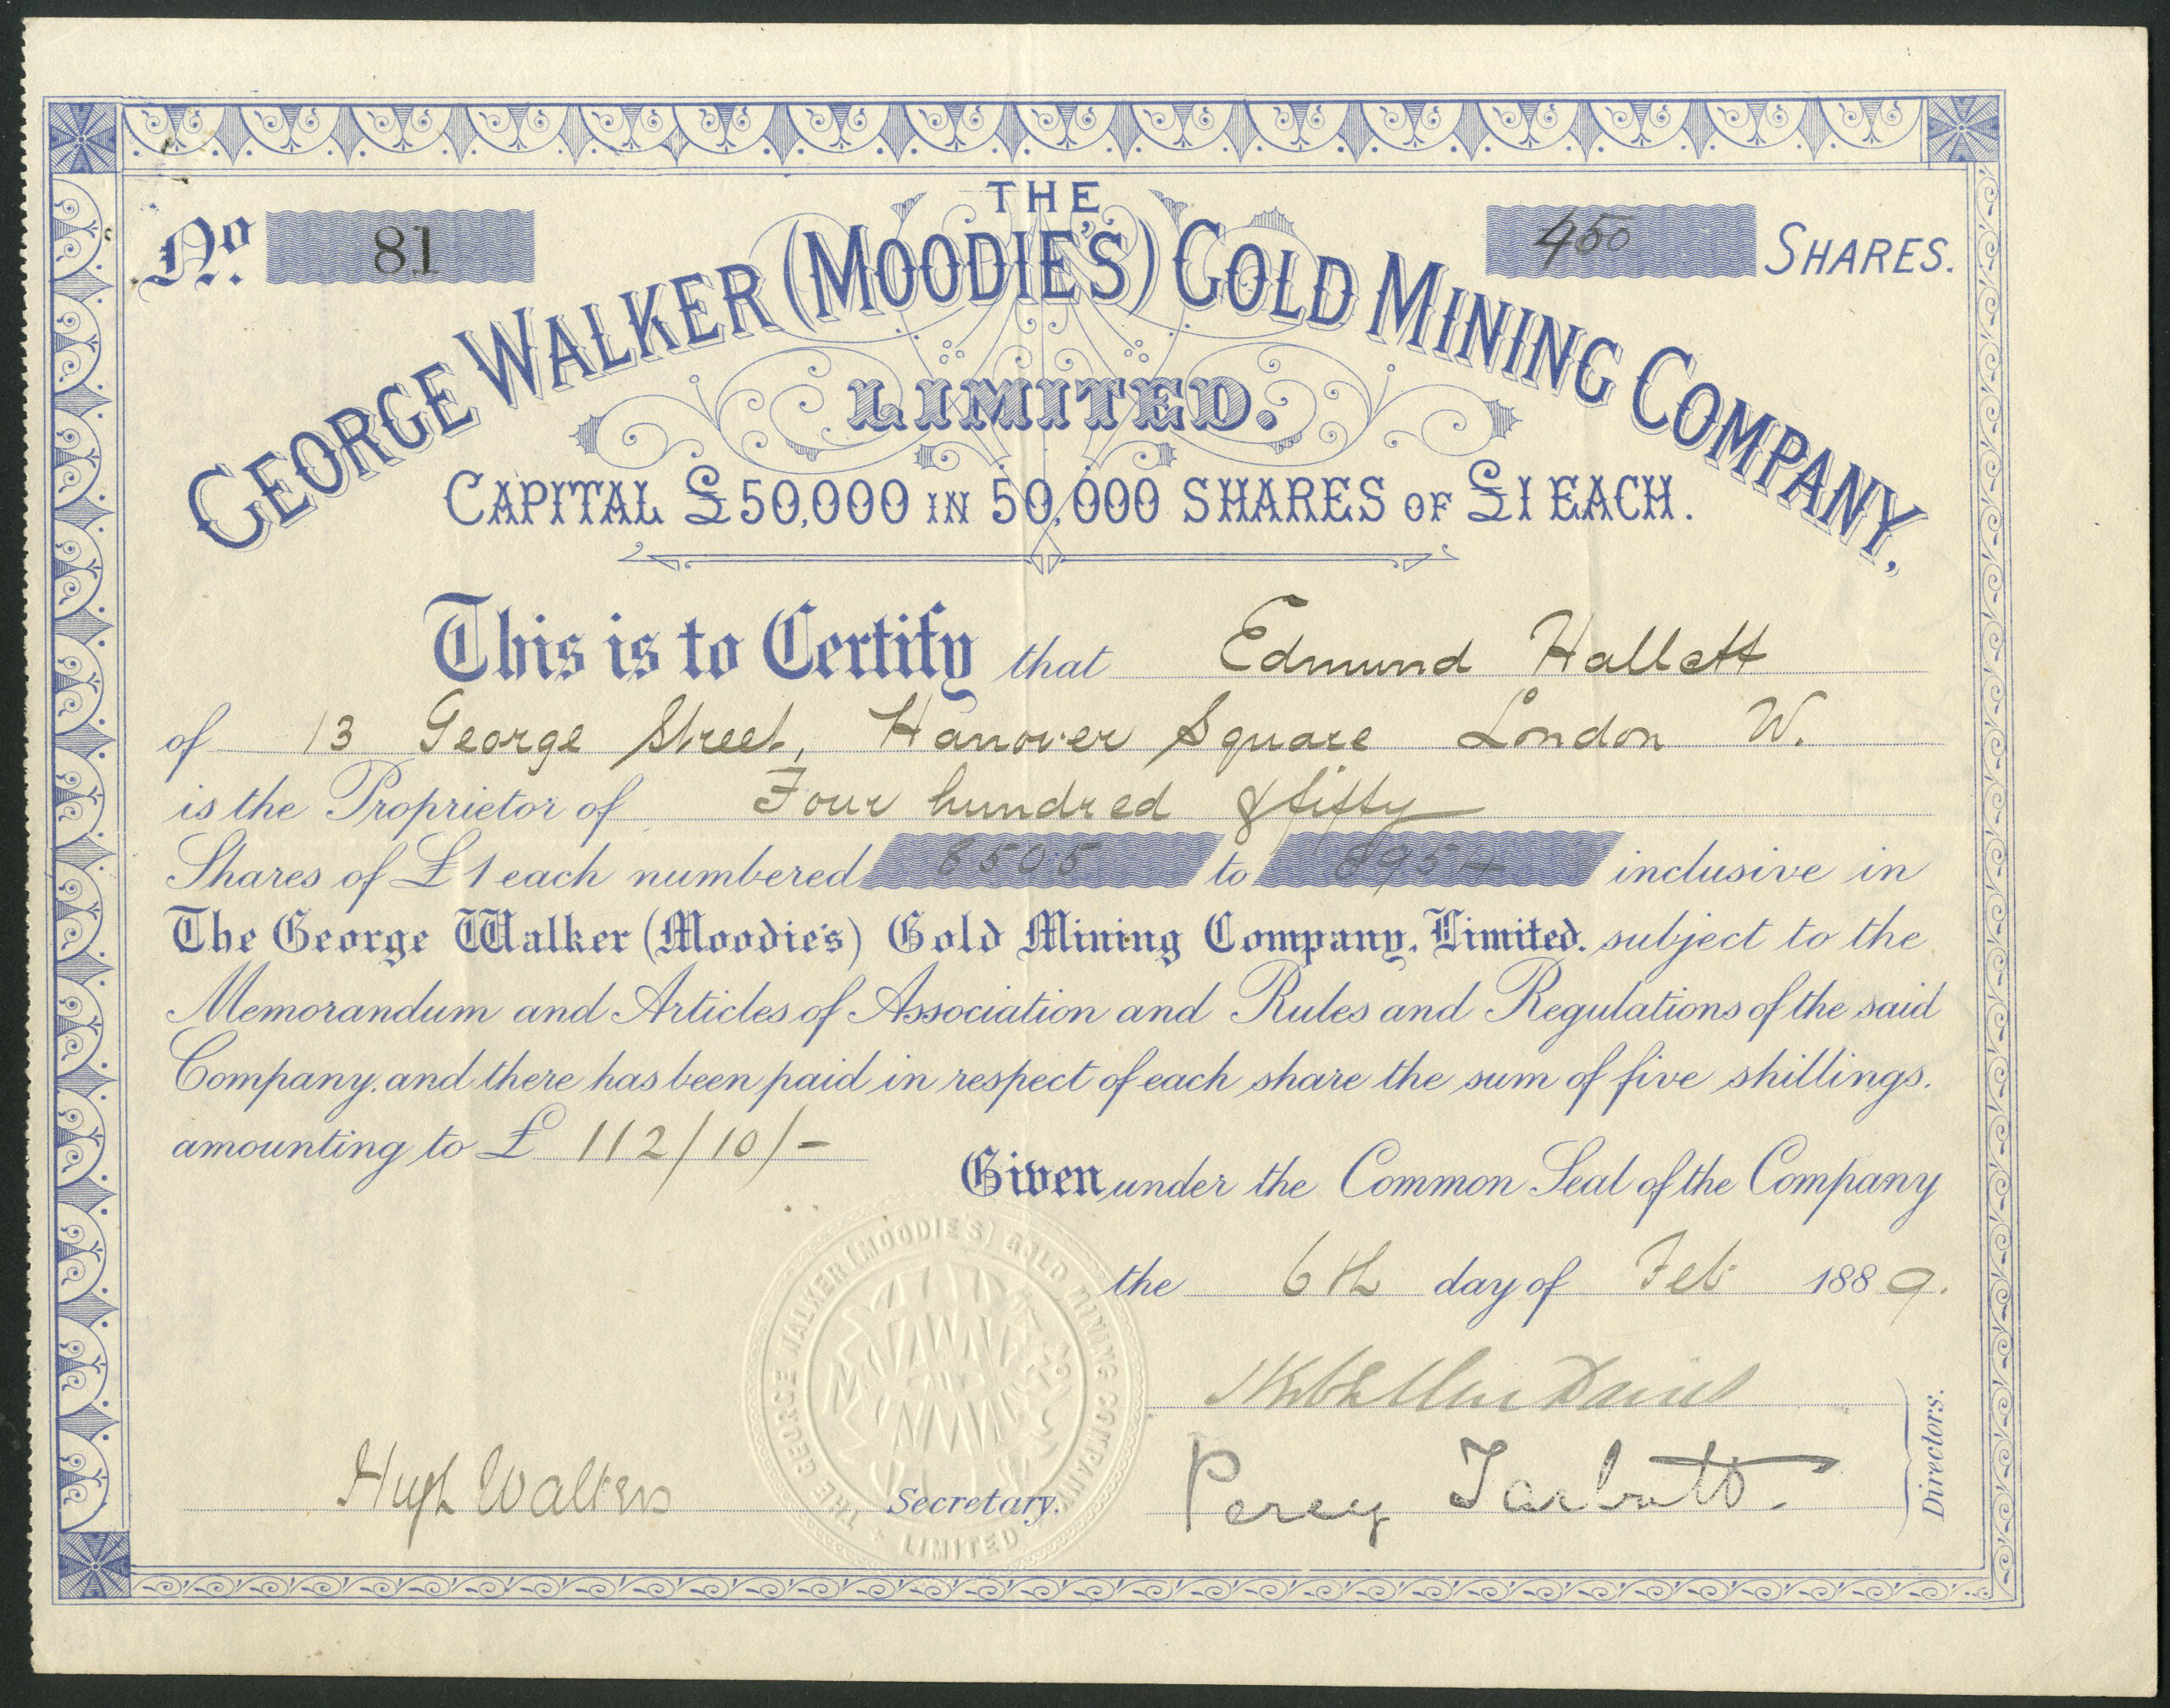 No. 81
450 SHARES.
THE
GEORGE WALKER (MOODIE'S) GOLD MINING COMPANY,
LIMITED.
CAPITAL £50,000 IN 50,000 SHARES OF £1 EACH.
This is to Certify that Edmund Hallett
of 13 George Street, Hanover Square London W.
is the Proprietor of Four hundred & fifty
Shares of £1 each numbered 8505 to 8954 inclusive in
The George Walker (Moodie's) Gold Mining Company, Limited. subject to the
Memorandum and Articles of Association and Rules and Regulations of the said
Company, and there has been paid in respect of each share the sum of five shillings.
amounting to £ 112/10/-
Given under the Common Seal of the Company
the 6th day of Feb 1889.
THE GEORGE WALKER (MOODIE'S) GOLD MINING COMPANY LIMITED
Hugh Walker Secretary.
Percy Tarbutt.
Directors.